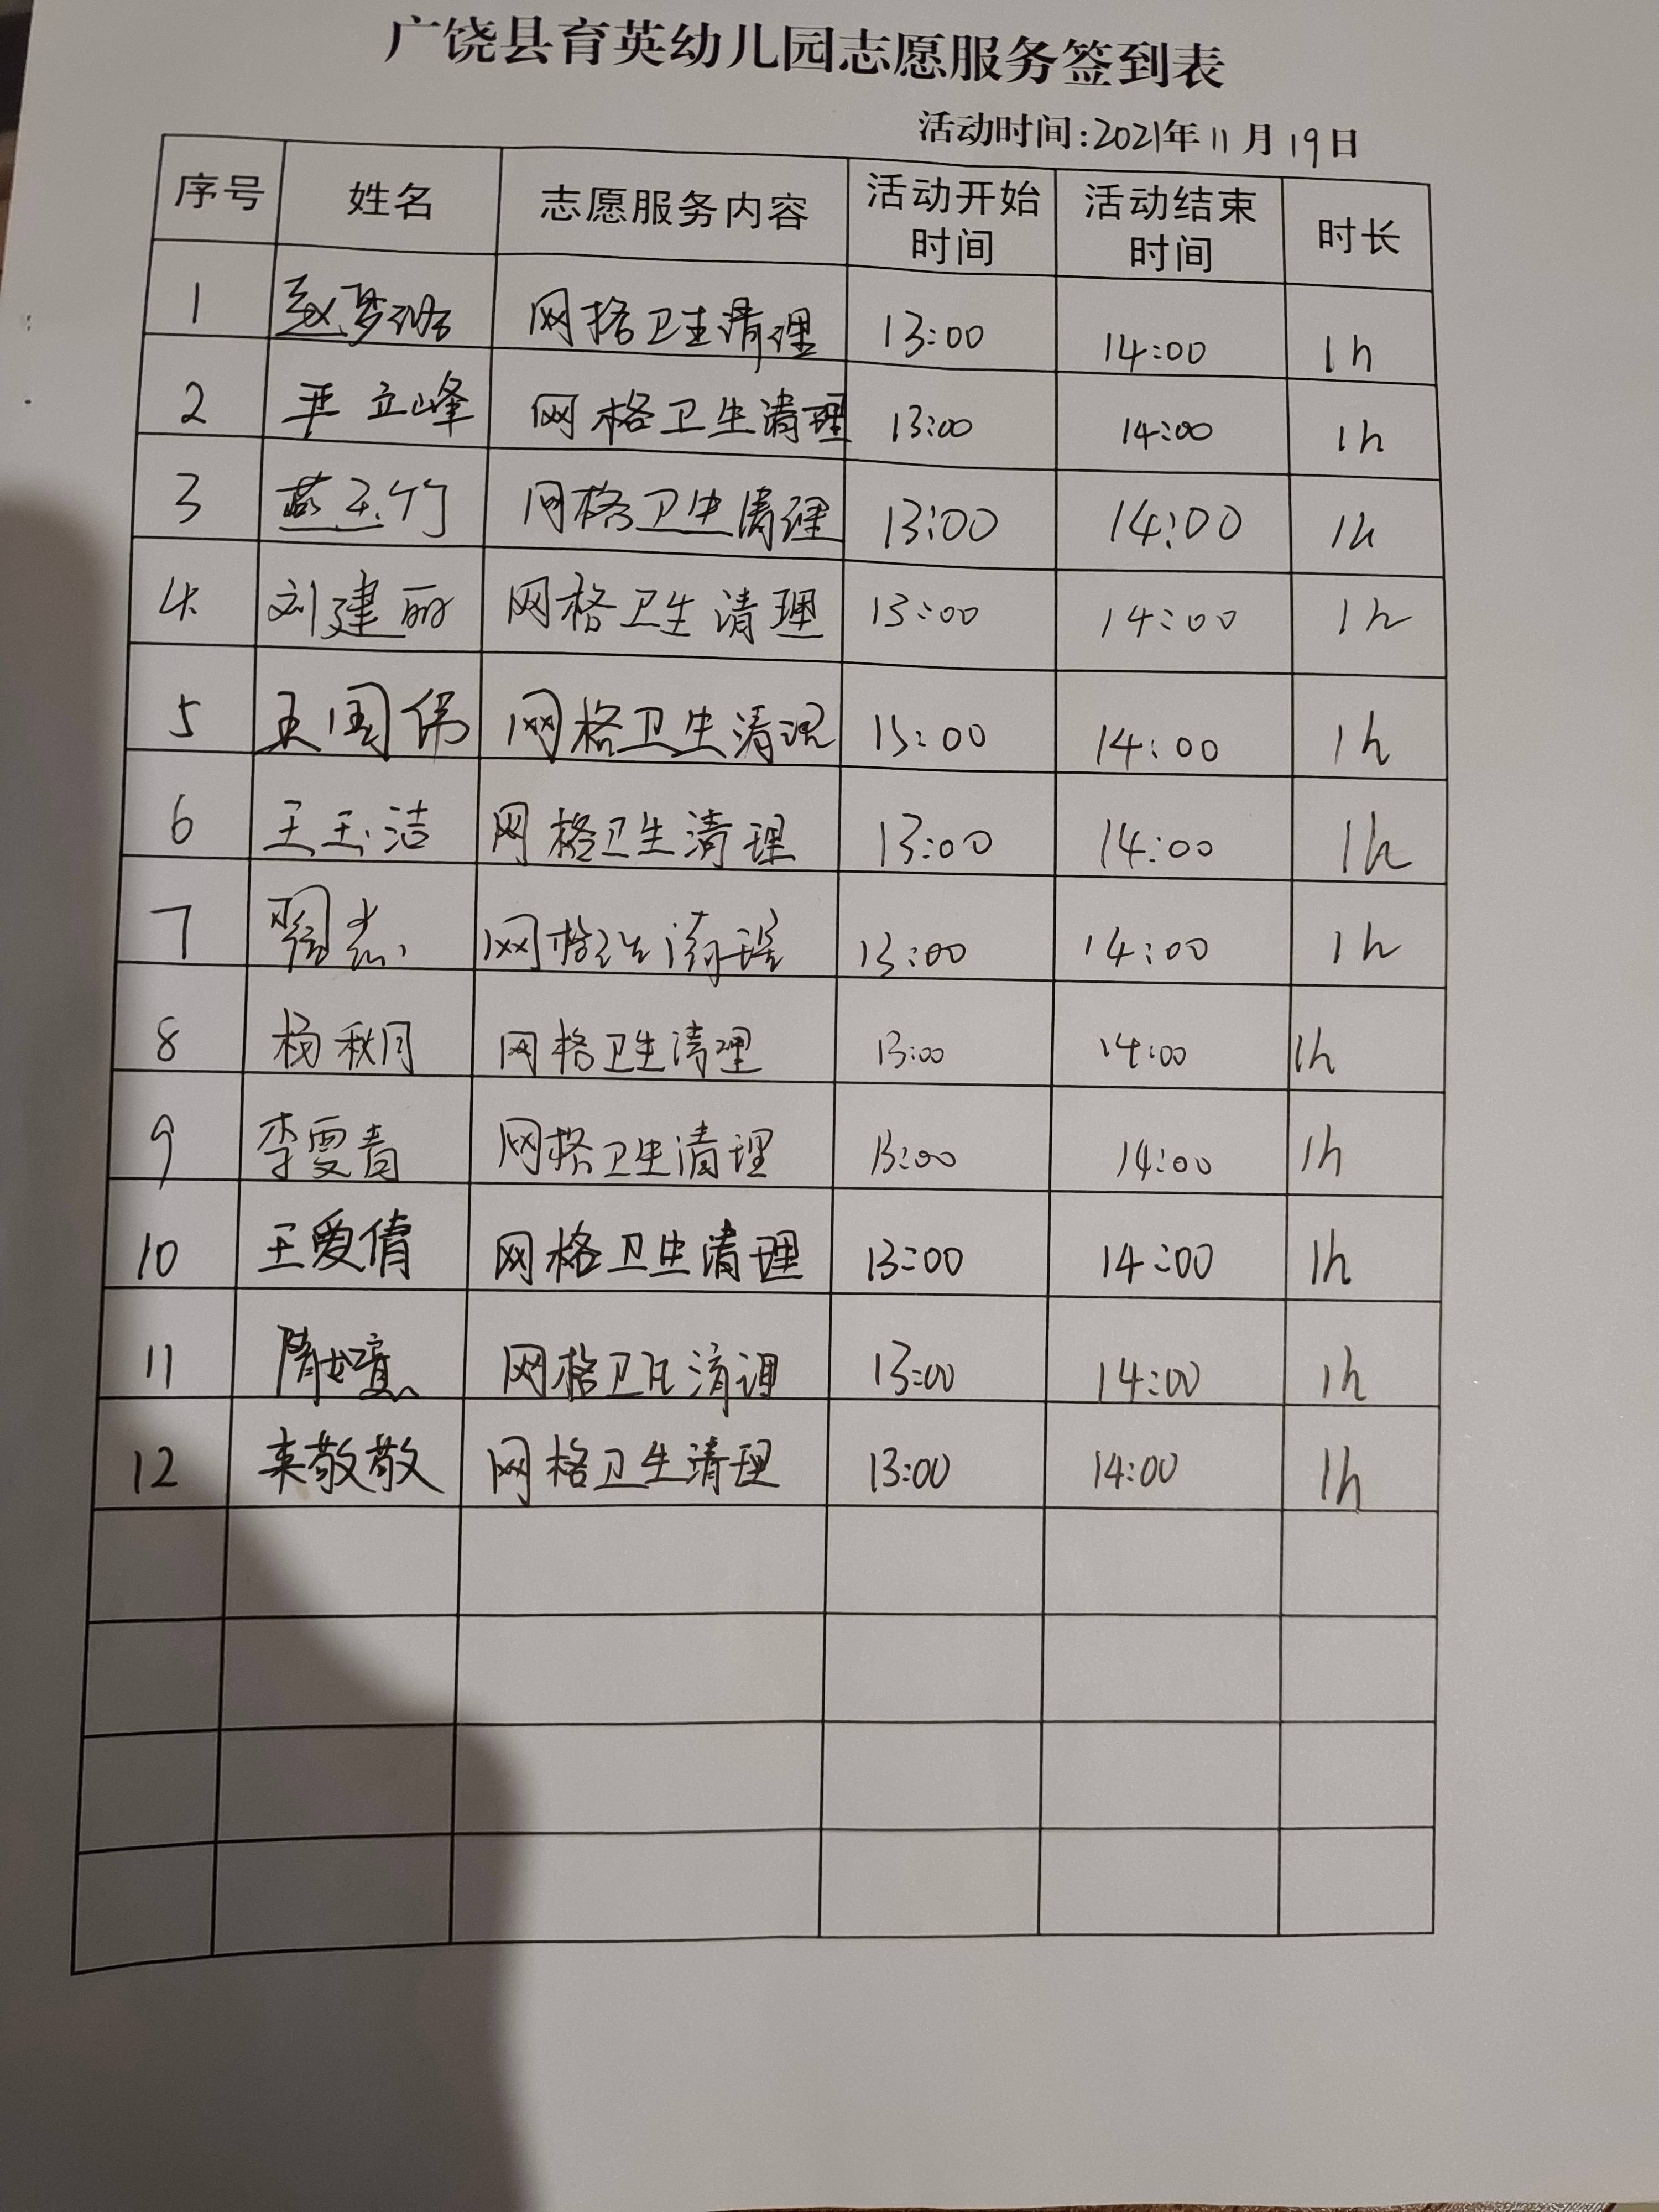 广饶县育英幼儿园志愿服务签到表
活动时间:2021年11月19日
序号 姓名 志愿服务内容 活动开始时间 活动结束时间 时长
1 赵梦 网格卫生清理 13:00 14:00 1h
2 严立峰 网格卫生清理 13:00 14:00 1h
3 燕玉竹 网格卫生清理 13:00 14:00 1h
4 刘建丽 网格卫生清理 13:00 14:00 1h
5 王国伟 网格卫生清理 13:00 14:00 1h
6 王玉洁 网格卫生清理 13:00 14:00 1h
7 网格卫生清理 13:00 14:00 1h
8 杨秋月 网格卫生清理 13:00 14:00 1h
9 李雯青 网格卫生清理 13:00 14:00 1h
10 王爱倩 网格卫生清理 13:00 14:00 1h
11 网格卫生清理 13:00 14:00 1h
12 敬敬 网格卫生清理 13:00 14:00 1h